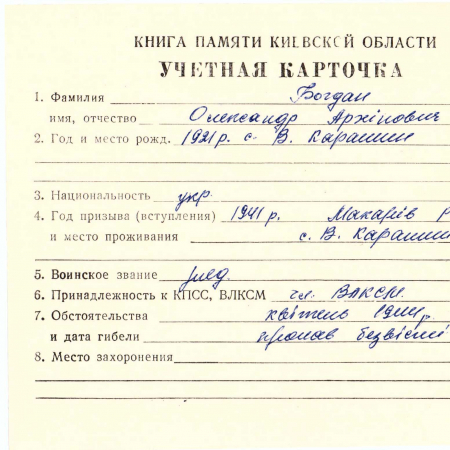 КНИГА ПАМЯТИ КИЕВСКОЙ ОБЛАСТИ
УЧЕТНАЯ КАРТОЧКА
1. Фамилия Богдан
имя, отчество Олександр Архіпович
2. Год и место рожд. 1921 р. с. В. Карашин
3. Национальность укр.
4. Год призыва (вступления) 1941 р. Макарів
и место проживания с. В. Карашин
5. Воинское звание
6. Принадлежность к КПСС, ВЛКСМ чл. ВЛКСМ.
7. Обстоятельства квітень р.
и дата гибели пропав безвісті
8. Место захоронения